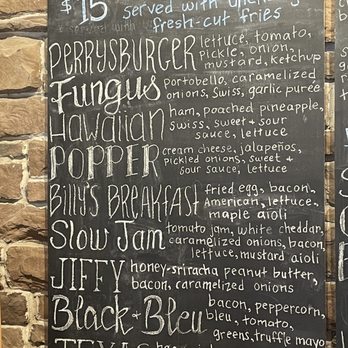 $15 served with
fresh-cut fries
served with
PERRYSBURGER lettuce, tomato,
pickle, onion,
mustard, ketchup
Fungus portobello, caramelized
onions, Swiss, garlic purée
Hawaiian ham, poached pineapple,
swiss, sweet + sour
sauce, lettuce
POPPER cream cheese, jalapeños,
pickled onions, sweet +
sour sauce, lettuce
BILLY'S BREAKFAST fried egg, bacon,
American, lettuce,
maple aioli
Slow Jam tomato jam, white cheddar,
caramelized onions, bacon,
lettuce, mustard aioli
JIFFY honey-sriracha peanut butter,
bacon, caramelized onions
Black + Bleu bacon, peppercorn,
bleu, tomato,
greens, truffle mayo
TEXAS